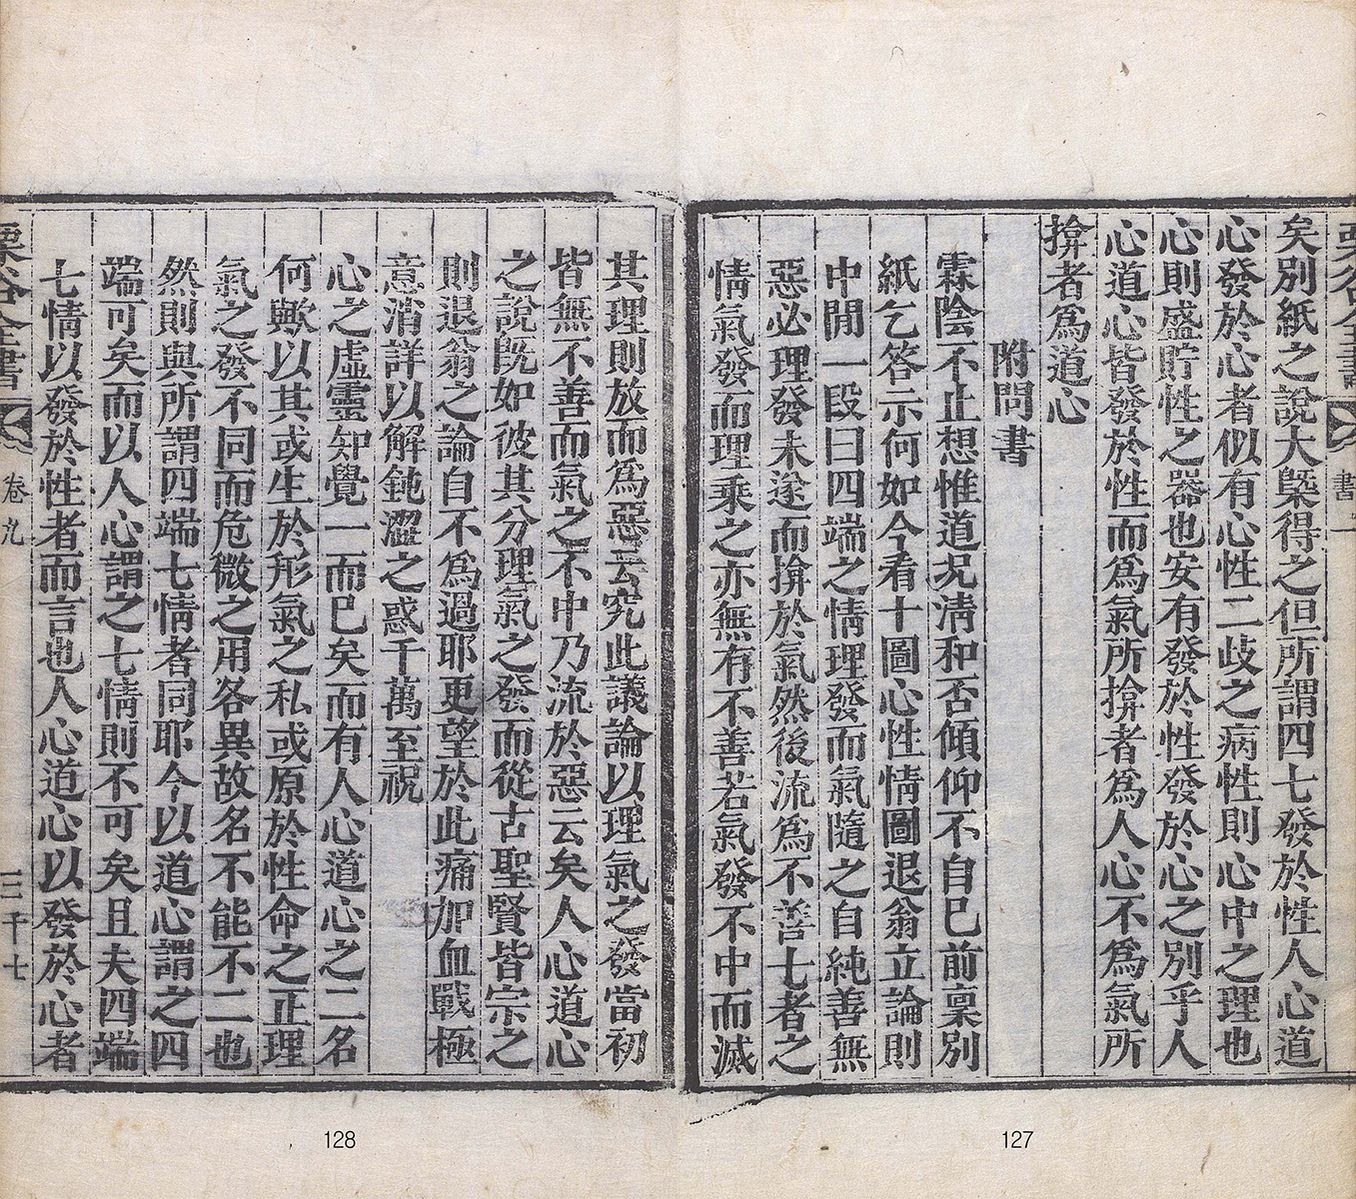 栗谷全書
書一
矣別紙之說大槩得之但所謂四七發於性人心道
心發於心者似有心性二歧之病性則心中之理也
心則盛貯性之器也安有發於性發於心之別乎人
心道心皆發於性而爲氣所揜者爲人心不爲氣所
揜者爲道心
附問書
霖陰不止想惟道況淸和否傾仰不自已前稟別
紙乞答示何如今看十圖心性情圖退翁立論則
中閒一段曰四端之情理發而氣隨之自純善無
惡必理發未遂而揜於氣然後流爲不善七者之
情氣發而理乘之亦無有不善若氣發不中而滅
127
其理則放而爲惡云究此議論以理氣之發當初
皆無不善而氣之不中乃流於惡云矣人心道心
之說旣如彼其分理氣之發而從古聖賢皆宗之
則退翁之論自不爲過耶更望於此痛加血戰極
意消詳以解鈍澀之惑千萬至祝
心之虛靈知覺一而已矣而有人心道心之二名
何歟以其或生於形氣之私或原於性命之正理
氣之發不同而危微之用各異故名不能不二也
然則與所謂四端七情者同耶今以道心謂之四
端可矣而以人心謂之七情則不可矣且夫四端
七情以發於性者而言也人心道心以發於心者
栗谷全書
卷九
三千七
128